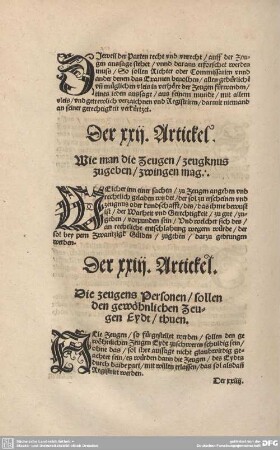 Dieweil der Parten recht vnd vnrecht / auff der Zeu-
gen aussage stehet / vnnd daraus erforschet werden
muss / So sollen Richter oder Commissarien vnnd
ander denen das Examen beuolhen / alles gebürliche
vñ möglichen vleis in verhöre der Zeugen fürwenden /
eines jeden aussage / aus seinem munde / mit allem
vleis / vnd getrewlich verzeichnen vnd Registriren / darmit niemand
an seiner gerechtigkeit verkürtzt werde.
Der xxij. Artickel.
Wie man die Zeugen / zeugknus
zugeben / zwingen mag.
Welcher inn einer sachen / zu Zeugen angeben vnd
rechtlich geladen würde / der sol zu erscheinen vnd
zeugnis oder kundschafft / des / das ihme bewust
ist / der Warheit vnd Gerechtigkeit / zu gut / zu-
geben / verpunden sein / Vnd welcher sich des /
an rechtliche entschüldigung wegern würde / der
sol bey peen Zwantzigk Gülden / zugeben / darzu gedrungen
werden.
Der xxiij. Artickel.
Die zeugens Personen / sollen
den gewöhnlichen Zeu-
gen Eydt / thuen.
Alle Zeugen / so fürgestellt werden / sollen den ge-
wöhnlichen Zeugen Eydt zuschweren schuldig sein /
ohne das / sol ihre aussage nicht glaubwirdig ge-
achtet sein / es würden dann die Zeugen / des Eydts
durch baide part / mit willen erlassen / das sol alsdañ
Registrirt werden.
Der xxiiij.